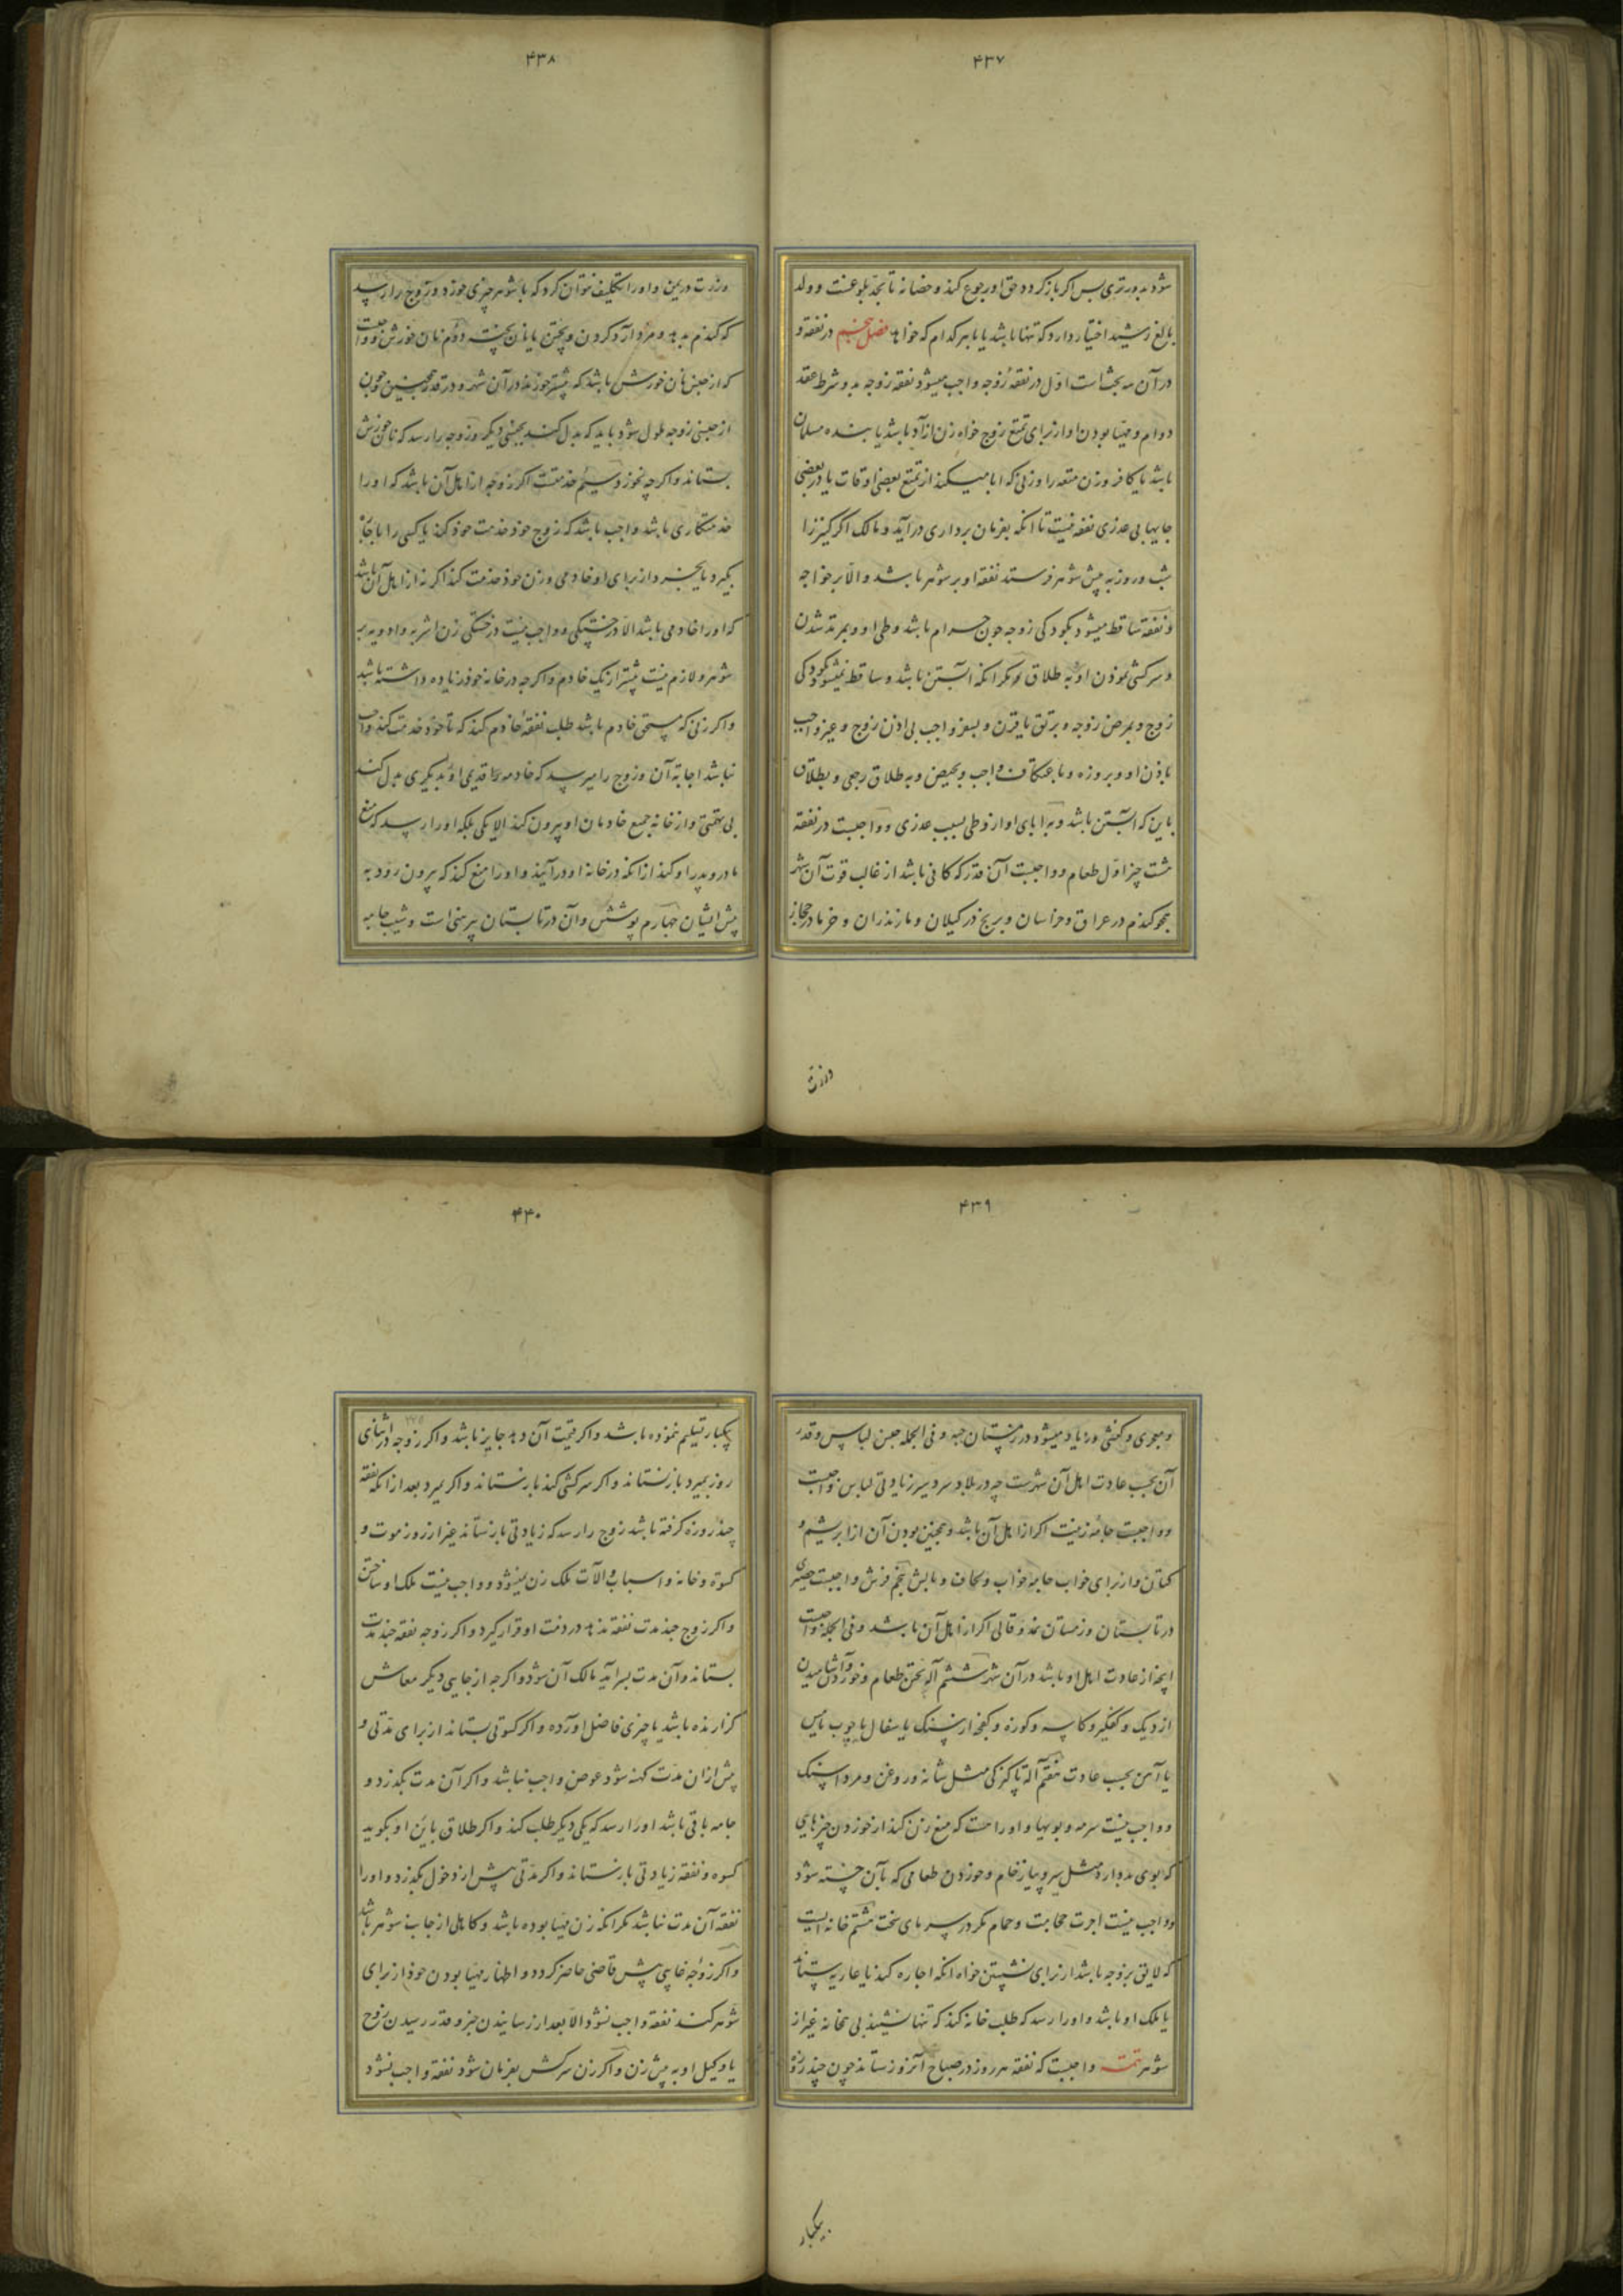 ۴۳۷
شود بدور تری پس اگر باز کردد حق او رجوع کند و حضانه تا بحد بلوغست و ولد
بالغ رشید اختیار دارد که تنها باشد یا با هر کدام که خواهد فصل پنجم در نفقه و
در آن سه بحث است اول در نفقهٔ زوجه واجب میشود نفقه زوجه بدو شرط عقد
دوام و مهیا بودن او از برای تمتع زوج خواه زن آزاد باشد یا بنده مسلمان
باشد یا کافر و زن متعه را و زنی که ابا میکند از تمتع بعضی اوقات یا در بعضی
جایها بی عذری نفقه نیست تا انکه بفرمان برداری در آید و مالک اگر کنیز را
شب و روز به پیش شوهر فرستد نفقه او بر شوهر باشد و الا بر خواجه
و نفقه ساقط میشود بکودکی زوجه چون حرام باشد وطی او و بمرتد شدن
و سرکشی نمودن او و به طلاق مکر انکه آبستن باشد و ساقط نمیشود بکودکی
زوج و بمرض زوجه و برتق یا قرن و بسفر واجب بی اذن زوج و غیر واجب
باذن او و بروزه و باعتکاف واجب و بحیض و به طلاق رجعی و بطلاق
باین که آبستن باشد و به ابای او از وطی بسبب عذری و واجبست در نفقه
هشت چیز اول طعام و واجبست آن قدر که کافی باشد از غالب قوت آن شهر
همچو کندم در عراق و خراسان و برنج در کیلان و مازندران و خرما در حجاز
وذرت
۴۳۸
وذرت در یمن و او را تکلیف نتوان کرد که با شوهر چیزی خورد و زوج را رسد
که کندم بدهد و مزد آرد کردن و پختن یا نان پخته دوم نان خورش و واجبست
که از جنس نان خورش باشد که بیشتر خورند در آن شهر و در قدر همچنین و چون
از جنسی زوجه ملول شود باید که بدل کند بجنسی دیکر و زوجه را رسد که نان خورش
بستاند و اکرچه نخورد سیم خدمتست اکر زوجه از اهل آن باشد که او را
خدمتکاری باشد واجب باشد که زوج خود خدمت خود کند یا کسی را باجاره
بکیرد یا بخرد از برای او خادمی و زن خود خدمت کند اکر نه از اهل آن باشد
که او را خادمی باشد الا در خستکی و واجب نیست در خستکی زن اشربه و ادویه بر
شوهر و لازم نیست بیشتر از یک خادم و اکرچه در خانه خود زیاده داشته باشد
و اکر زنی که مستحق خادم باشد طلب نفقه خادم کند که تا خود خدمت کند واجب
نباشد اجابه آن و زوج را میرسد که خادمه قدیمی او بدیکری بدل کند
بی تهمتی و از خانه جمیع خادمان او بیرون کند الا یکی بلکه او را رسد که منع
مادر و پدر او کند از انکه در خانه او در آیند و او را منع کند که بیرون رود به
پیش ایشان چهارم پوشش و آن در تابستان پیرهنی است و شیب جامه
۴۳۹
و معجری و کفشی و زیاد میشود در زمستان جبه و فی الجمله جنس لباس و قدر
آن بحسب عادت اهل آن شهرست چه در بلاد سردسیر زیادتی لباس واجبست
و واجبست جامهٔ زینت اکر از اهل آن باشد و همچنین بودن آن از ابریشم و
کتان و از برای خواب جامه خواب و لحاف و بالش پنجم فرش واجبست حصیری
در تابستان و زمستان نمد و قالی اکر از اهل آن باشد و فی الجمله واجبست
انچه از عادت اهل او باشد در آن شهر ششم آله پختن طعام و خوردن و آشامیدن
از دیک و کفکیر و کاسه و کوزه و کفچه از سنک یا سفال یا چوب یا مس
یا آهن بحسب عادت هفتم آله پاکیزکی مثل شانه و روغن و مرداسنک
و واجب نیست سرمه و بویها و او راست که منع زن کند از خوردن چیزهایی
که بوی بد دارد مثل سیر و پیاز خام و خوردن طعامی که بآن خسته شود
و واجب نیست اجرت حجامت و حمام مکر در سرمای سخت هشتم خانه ایست
که لایق بزوجه باشد از برای نشستن خواه انکه اجاره کند یا عاریه بستاند
یا ملک او باشد و او را رسد که طلب خانه کند که تنها نشیند بی همخانه غیر از
شوهر تتمه واجبست که نفقه هر روز در صباح آنروز ستاند چون چند روز
یکبار
۴۴۰
یکبار تسلیم نموده باشد و اکر قیمت آن دهد جایز باشد و اکر زوجه در اثنای
روز بمیرد باز نستاند و اکر سرکشی کند باز ستاند و اکر بمیرد بعد از انکه نفقه
چند روزه کرفته باشد زوج را رسد که زیادتی باز ستاند غیر از روز موت و
کسوة و خانه و اسباب و آلات ملک زن نمیشود و واجب نیست ملک او ساختن
و اکر زوج چند مدت نفقه ندهد در ذمت او قرار کیرد و اکر زوجه نفقه چند مدت
بستاند و آن مدت بسر آید مالک آن شود و اکرچه از جایی دیکر معاش
کزارنده باشد یا چیزی فاضل آورده و اکر کسوتی بستاند از برای مدتی و
پیش از ان مدت کهنه شود عوض واجب نباشد و اکر آن مدت بکذرد و
جامه باقی باشد او را رسد که یکی دیکر طلب کند و اکر طلاق باین او بکوید
کسوه و نفقه زیادتی باز ستاند و اکر مدتی پیش از دخول بکذرد و او را
نفقه آن مدت نباشد مکر انکه زن مهیا بوده باشد و کاهلی از جانب شوهر باشد
و اکر زوجه غایبی پیش قاضی حاضر کردد و اظهار مهیا بودن خود از برای
شوهر کند نفقه واجب نشود الا بعد از رسانیدن خبر و قدر رسیدن زوج
یا وکیل او به پیش زن و اکر زن سرکش بفرمان شود نفقه واجب نشود